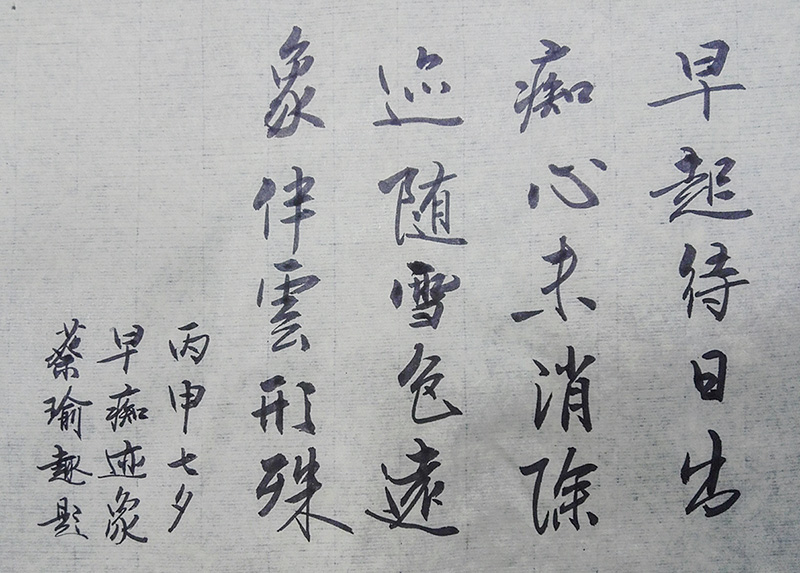 早起待日出
痴心未消除
迹随雪色遠
象伴雲形殊
丙申七夕
早痴迹象
蔡瑜趣題